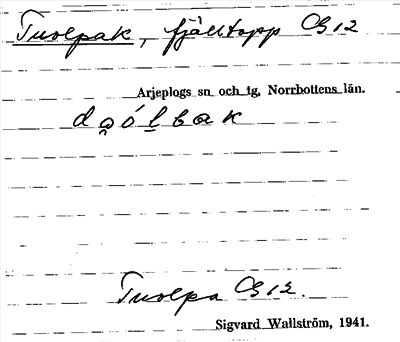 Tuolpak, fjälltopp CG 12
Arjeplogs sn och tg, Norrbottens län.
Tuolpa CG 12.
Sigvard Wallström, 1941.